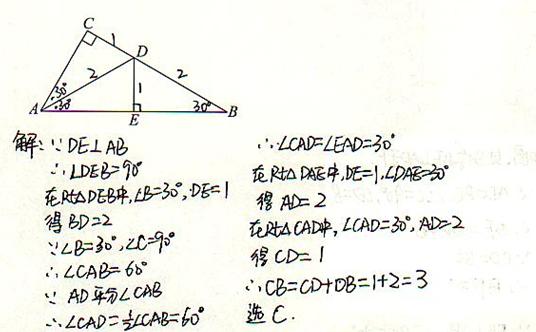 C
1
D
2
2
30°
30°
1
A
E
30°
B
解:∵DE⊥AB
∴∠DEB=90°
在Rt△DEB中,∠B=30°,DE=1
得BD=2
∵∠B=30°,∠C=90°
∴∠CAB=60°
∵AD平分∠CAB
∴∠CAD=½∠CAB=60°
∴∠CAD=∠EAD=30°
在Rt△DAE中,DE=1,∠DAE=30°
得AD=2
在Rt△CAD中,∠CAD=30°,AD=2
得CD=1
∴CB=CD+DB=1+2=3
选C.